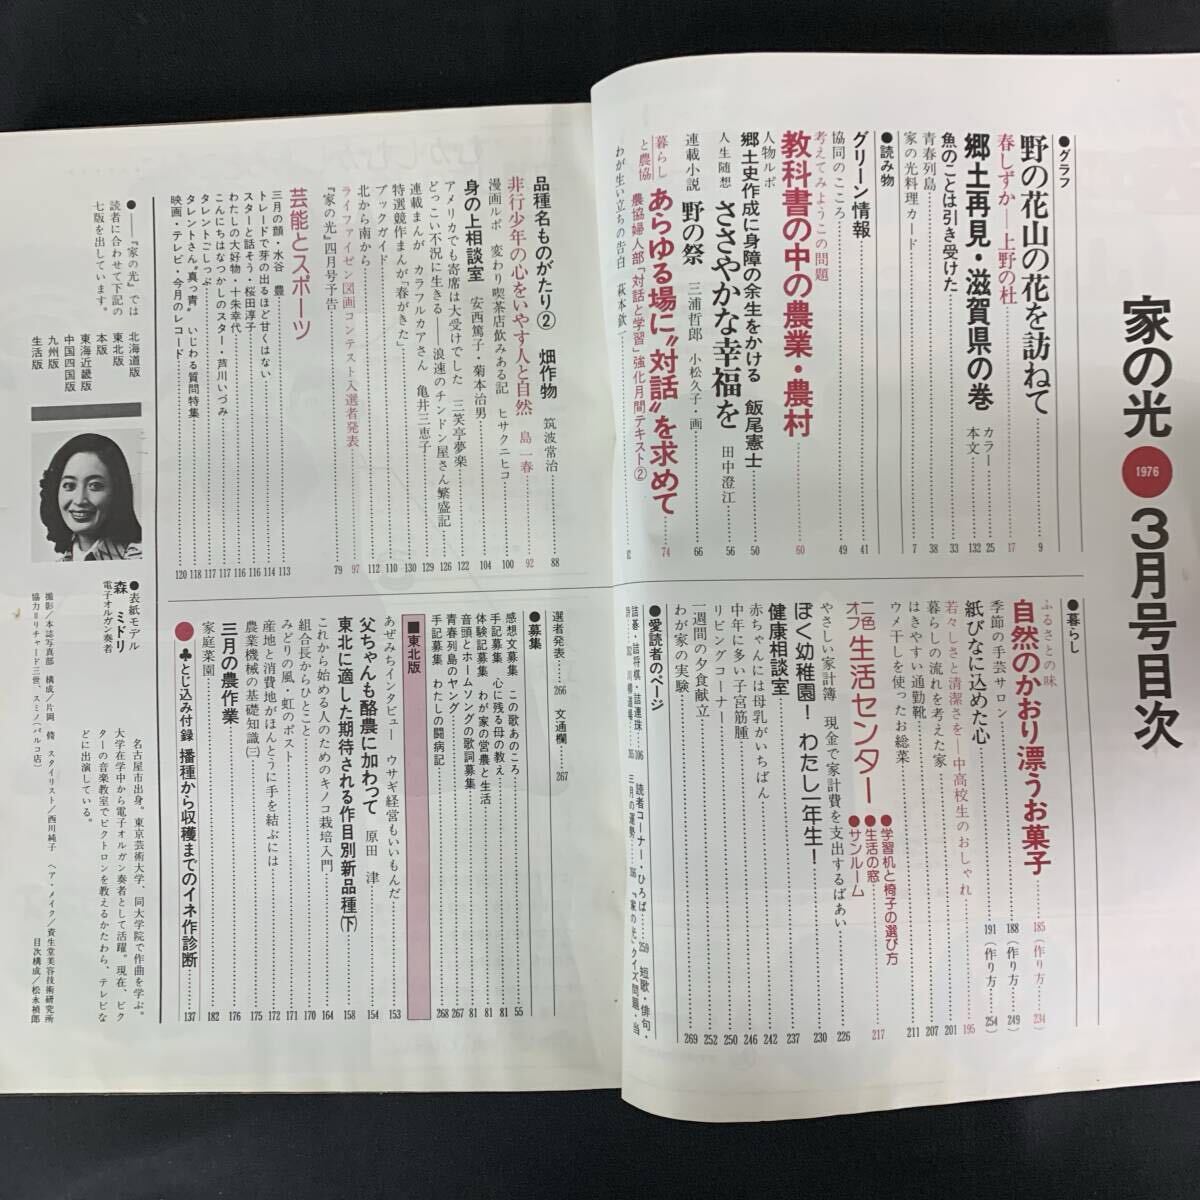 家の光 1976 3月号目次
●グラフ
野の花山の花を訪ねて 9
春しずか―上野の杜 17
郷土再見・滋賀県の巻 カラー 25
本文 132
魚のことは引き受けた 33
青春列島 38
家の光料理カード 7
●読み物
グリーン情報 41
協同のこころ 49
考えてみようこの問題
教科書の中の農業・農村 60
人物ルポ
郷土史作成に身障の余生をかける 飯尾憲士 50
人生随想 ささやかな幸福を 田中澄江 56
連載小説 野の祭 三浦哲郎 小松久子・画 66
暮らしと農協 あらゆる場に“対話”を求めて 74
農協婦人部「対話と学習」強化月間テキスト②
わが生い立ちの告白 萩本欽一
品種名ものがたり② 畑作物 筑波常治 88
非行少年の心をいやす人と自然 島一春 92
漫画ルポ 変わり喫茶店飲みある記 ヒサクニヒコ 100
身の上相談室 安西篤子・菊本治男 104
アメリカでも寄席は大受けでした 三笑亭夢楽 122
どっこい不況に生きる――浪速のチンドン屋さん繁盛記 126
連載まんが カラフルカアさん 亀井三恵子 129
特選競作まんが「春がきた」 130
ブックガイド 110
北から南から 112
ライファイゼン図画コンテスト入選者発表 97
『家の光』四月号予告 79
芸能とスポーツ
三月の顔・水谷 豊 113
トレードで芽の出るほど甘くはない 114
スターと話そう・桜田淳子 116
わたしの大好物・十朱幸代 116
こんにちはなつかしのスター・芦川いづみ 117
タレントごしっぷ 117
タレントさん“真っ青” いじわる質問特集 118
映画・テレビ・今月のレコード 120
●暮らし
ふるさとの味
自然のかおり漂うお菓子 185（作り方 234）
季節の手芸サロン 188（作り方 249）
紙びなに込めた心 191（作り方 254）
若々しさと清潔さを―中高校生のおしゃれ 195
暮らしの流れを考えた家 201
はきやすい通勤靴 207
ウメ干しを使ったお総菜 211
二色オフ 生活センター 217
●学習机と椅子の選び方
●生活の窓
●サンルーム
やさしい家計簿 現金で家計費を支出するばあい 226
ぼく幼稚園！わたし一年生！ 230
健康相談室 237
赤ちゃんには母乳がいちばん 242
中年に多い子宮筋腫 246
リビングコーナー 250
一週間の夕食献立 252
わが家の実験 269
●愛読者のページ
読者コーナー・ひろば 259 短歌・俳句・
詰碁・詰将棋・詰連珠
三月の運勢
選者発表 266 文通欄 267
●募集
感想文募集 この歌あのころ 55
手記募集 心に残る母の教え 81
体験記募集 わが家の営農と生活 81
音頭とホームソングの歌詞募集 81
青春列島のヤング 267
手記募集 わたしの闘病記 268
■東北版
あぜみちインタビュー ウサギ経営もいいもんだ 153
父ちゃんも酪農に加わって 原田 津 154
東北に適した期待される作目別新品種(下) 158
これから始める人のためのキノコ栽培入門 164
組合長からひとこと 170
みどりの風・虹のポスト 171
産地と消費地がほんとうに手を結ぶには 172
農業機械の基礎知識(三) 175
三月の農作業 176
家庭菜園 182
●♣とじ込み付録 播種から収穫までのイネ作診断 137
●――『家の光』では
読者に合わせて下記の
七版を出しています。
北海道版
東北版
本版
東海近畿版
中国四国版
九州版
生活版
●表紙モデル
森 ミドリ
電子オルガン奏者
名古屋市出身。東京芸術大学、同大学院で作曲を学ぶ。
大学在学中から電子オルガン奏者として活躍。現在、ビク
ターの音楽教室でビクトロンを教えるかたわら、テレビな
どに出演している。
撮影／本誌写真部 構成／片岡 脩 スタイリスト／西川純子 ヘア・メイク／資生堂美容技術研究所
協力＝リチャード三世、スミノ（パルコ店） 目次構成／松永禎郎